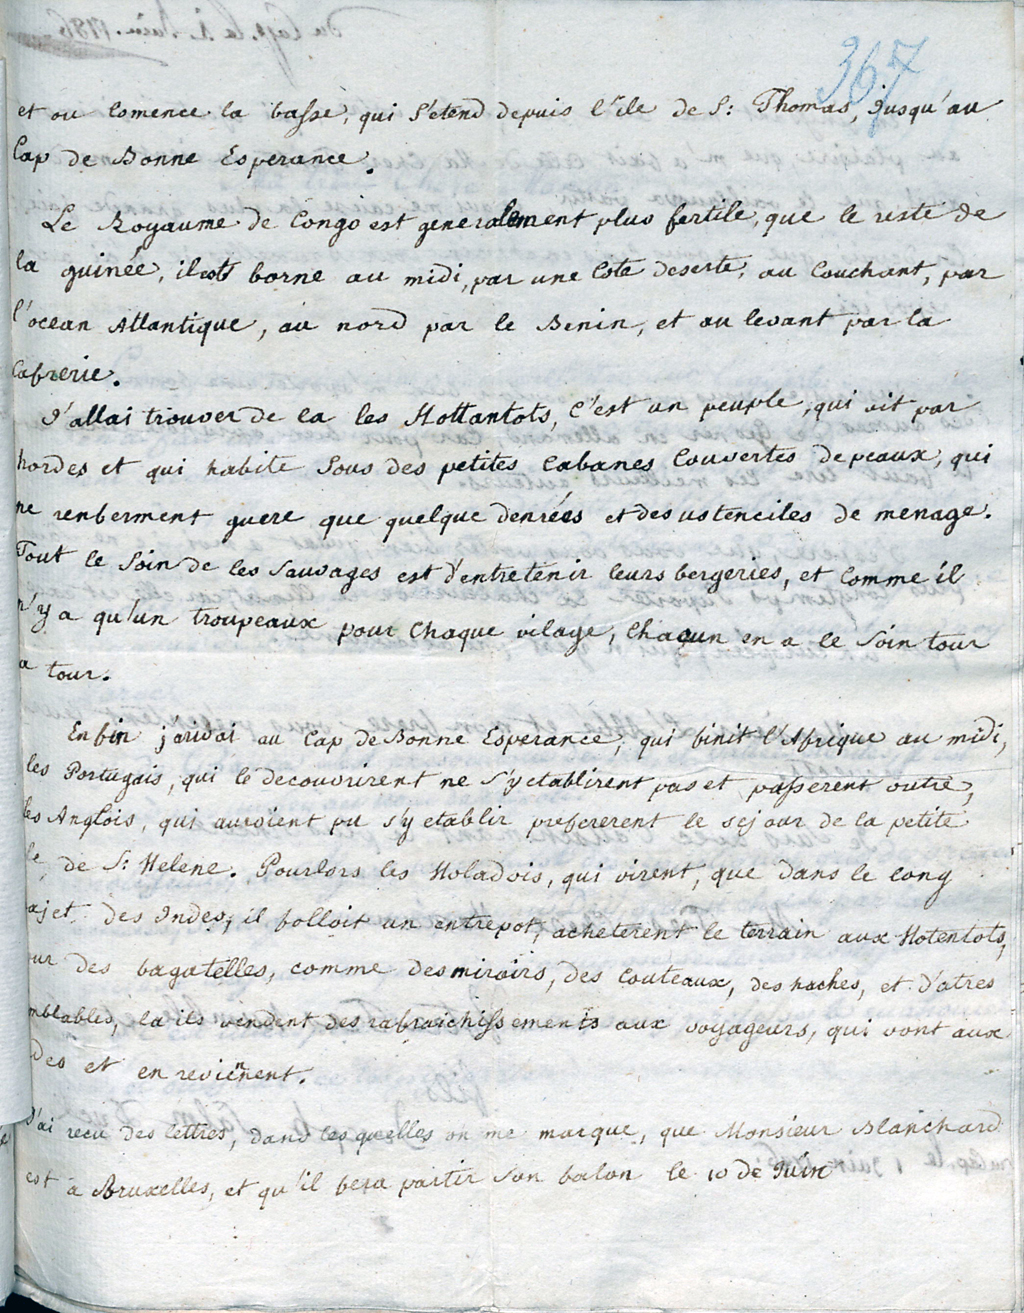 367
et ou Comence la basse, qui s'étend depuis l'ile de S: Thomas, jusqu'au
Cap de Bonne Esperance.
Le Royaume de Congo est generalement plus fertile, que le reste de
la guinée, il est borne au midi, par une Cote deserte, au Couchant, par
l'ocean Atlantique, au nord par le Benin, et au levant par la
Cafrerie.
J'allai trouver de la les Hottantots, C'est un peuple, qui vit par
hordes et qui habite Sous des petites Cabanes Couvertes de peaux, qui
ne renferment guere que quelque denrées et des ustenciles de menage.
Tout le Soin de les Sauvages est d'entretenir leurs bergeries, et Comme il
n'y a qu'un troupeaux pour Chaque vilage, Chaqun en a le Soin tour
a tour.
Enfin j'arivai au Cap de Bonne Esperance, qui finit l'Afrique au midi,
les Portugais, qui le decouvrirent ne s'y etablirent pas et passerent outre,
les Anglois, qui auroient pu s'y etablir prefererent le sejour de la petite
ile, de S: Helene. Pourlors les Holadois, qui virent, que dans le long
ajet des Indes, il falloit un entrepot, acheterent le terrain aux Hotentots,
ur des bagatelles, comme des miroirs, des Couteaux, des haches, et d'atres
mblables, la ils vendent des rafraichissements aux voyageurs, qui vont aux
des et en reviennent.
J'ai recu des lettres, dans lesquelles on me marque, que Monsieur Blanchard
est a Bruxelles, et qu'il fera partir Son balon le 10 de Juin